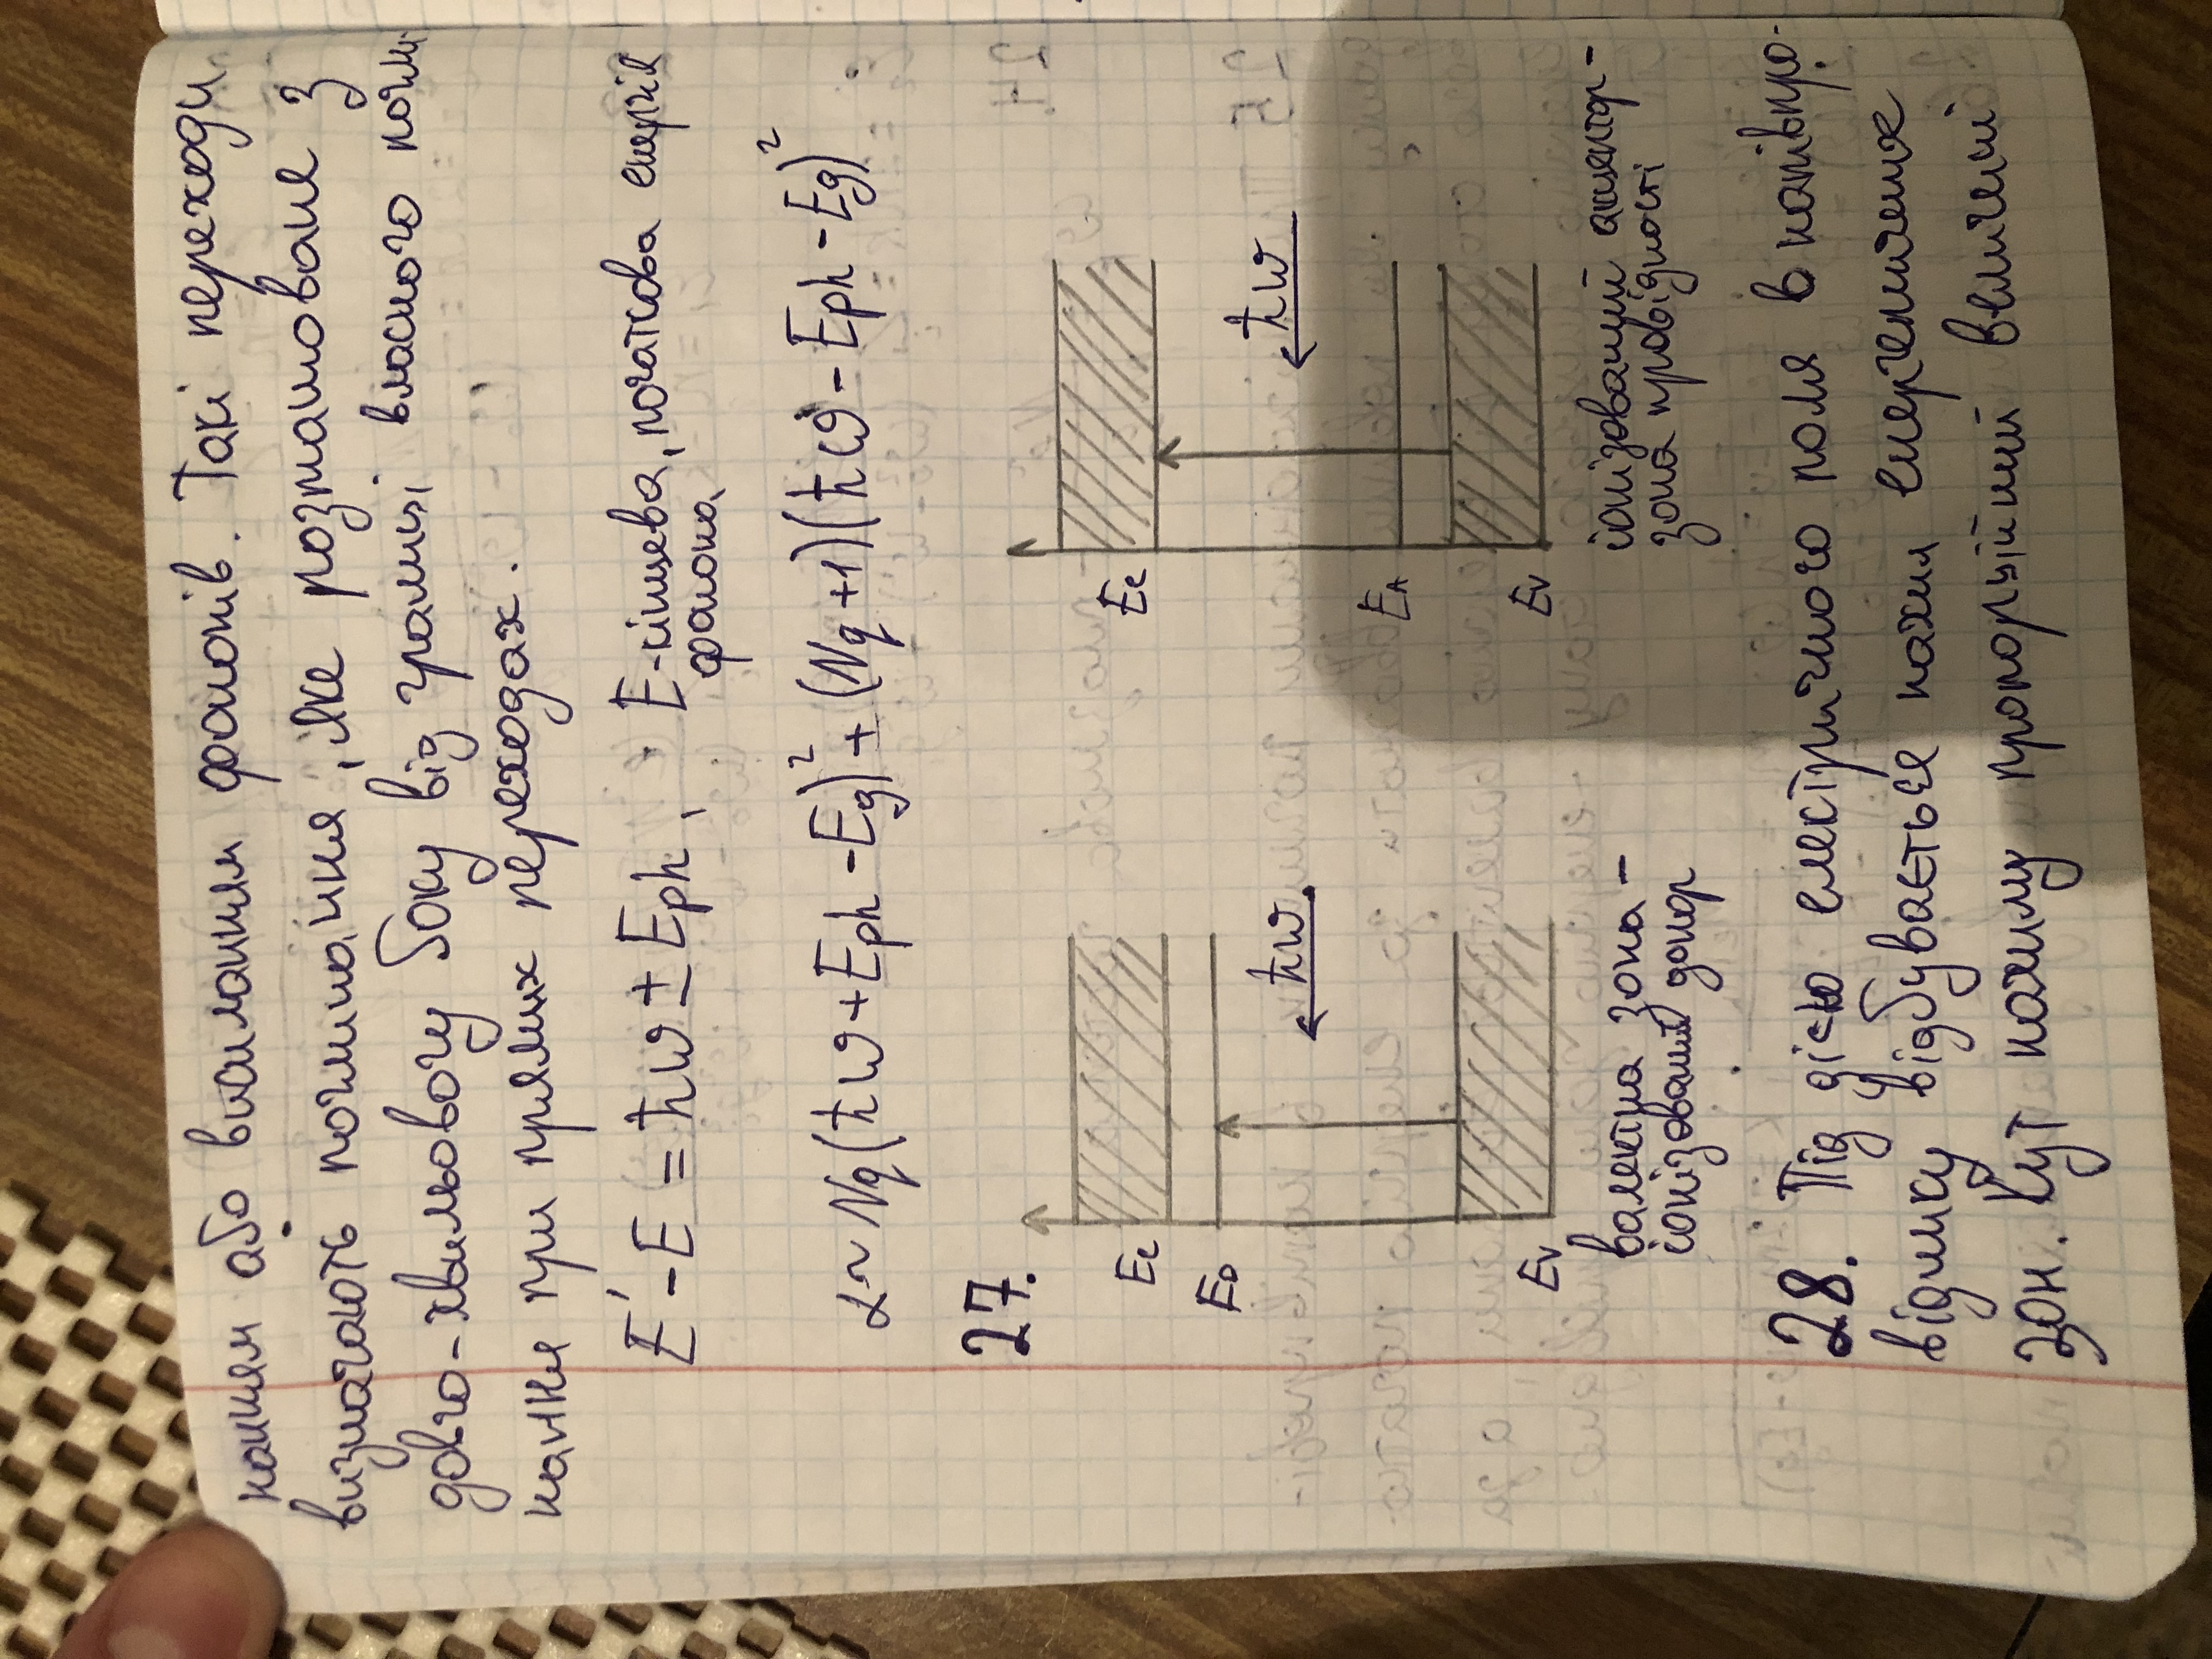 нанням або висиланням фононів. Такі переходи
визначають поглинання, яке розташоване з
довго-хвильовогу боку від границі власного погли-
нання при прямих переходах.
E' - E = ħω ± Eph, E-кінцева, початкова енергія
фонона
α ~ Nq(ħω + Eph - Eg)² + (Nq + 1)(ħω - Eph - Eg)²
27.
Ec
Ec
ED
ħω
ħω
EA
Ev
Ev
валектна зона -
іонізований донор
іонізований акцектор -
зона провідності
28. Під дією електричного поля в напівпро-
віднику відбувається нахил енергетичних
зон. Кут нахилу пропорційний величині